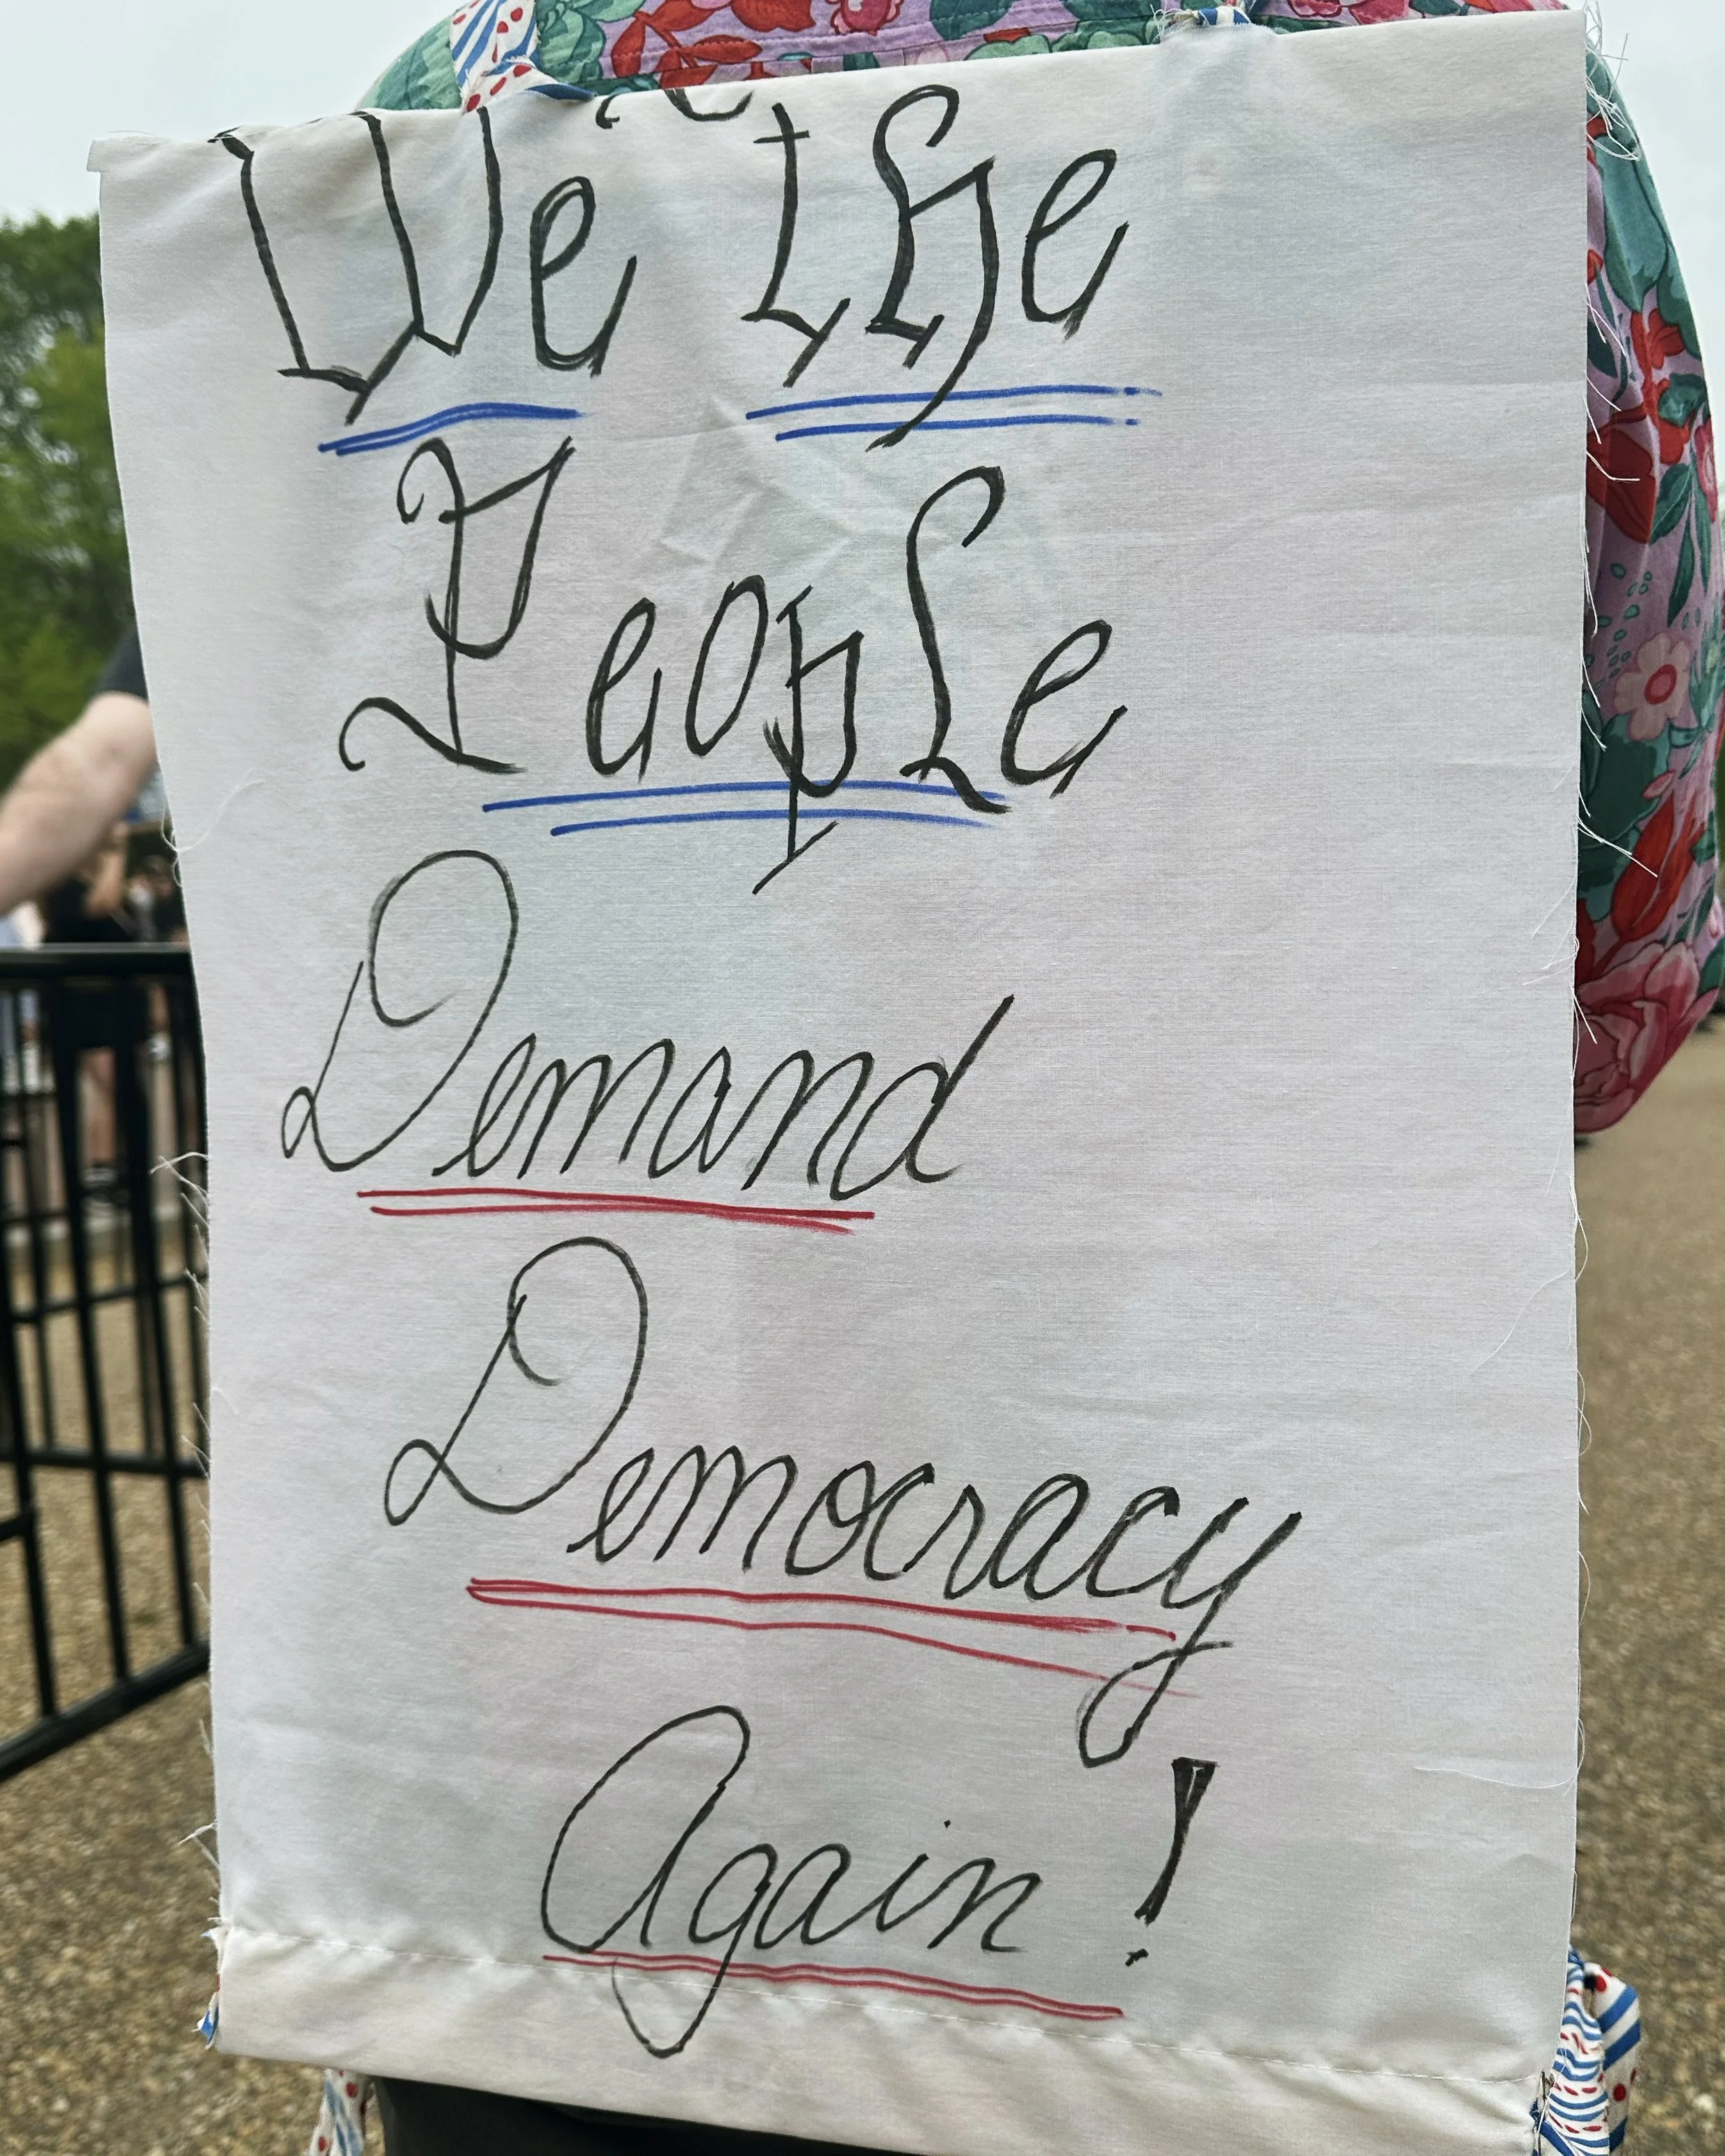 We the
People
Demand
Democracy
Again!